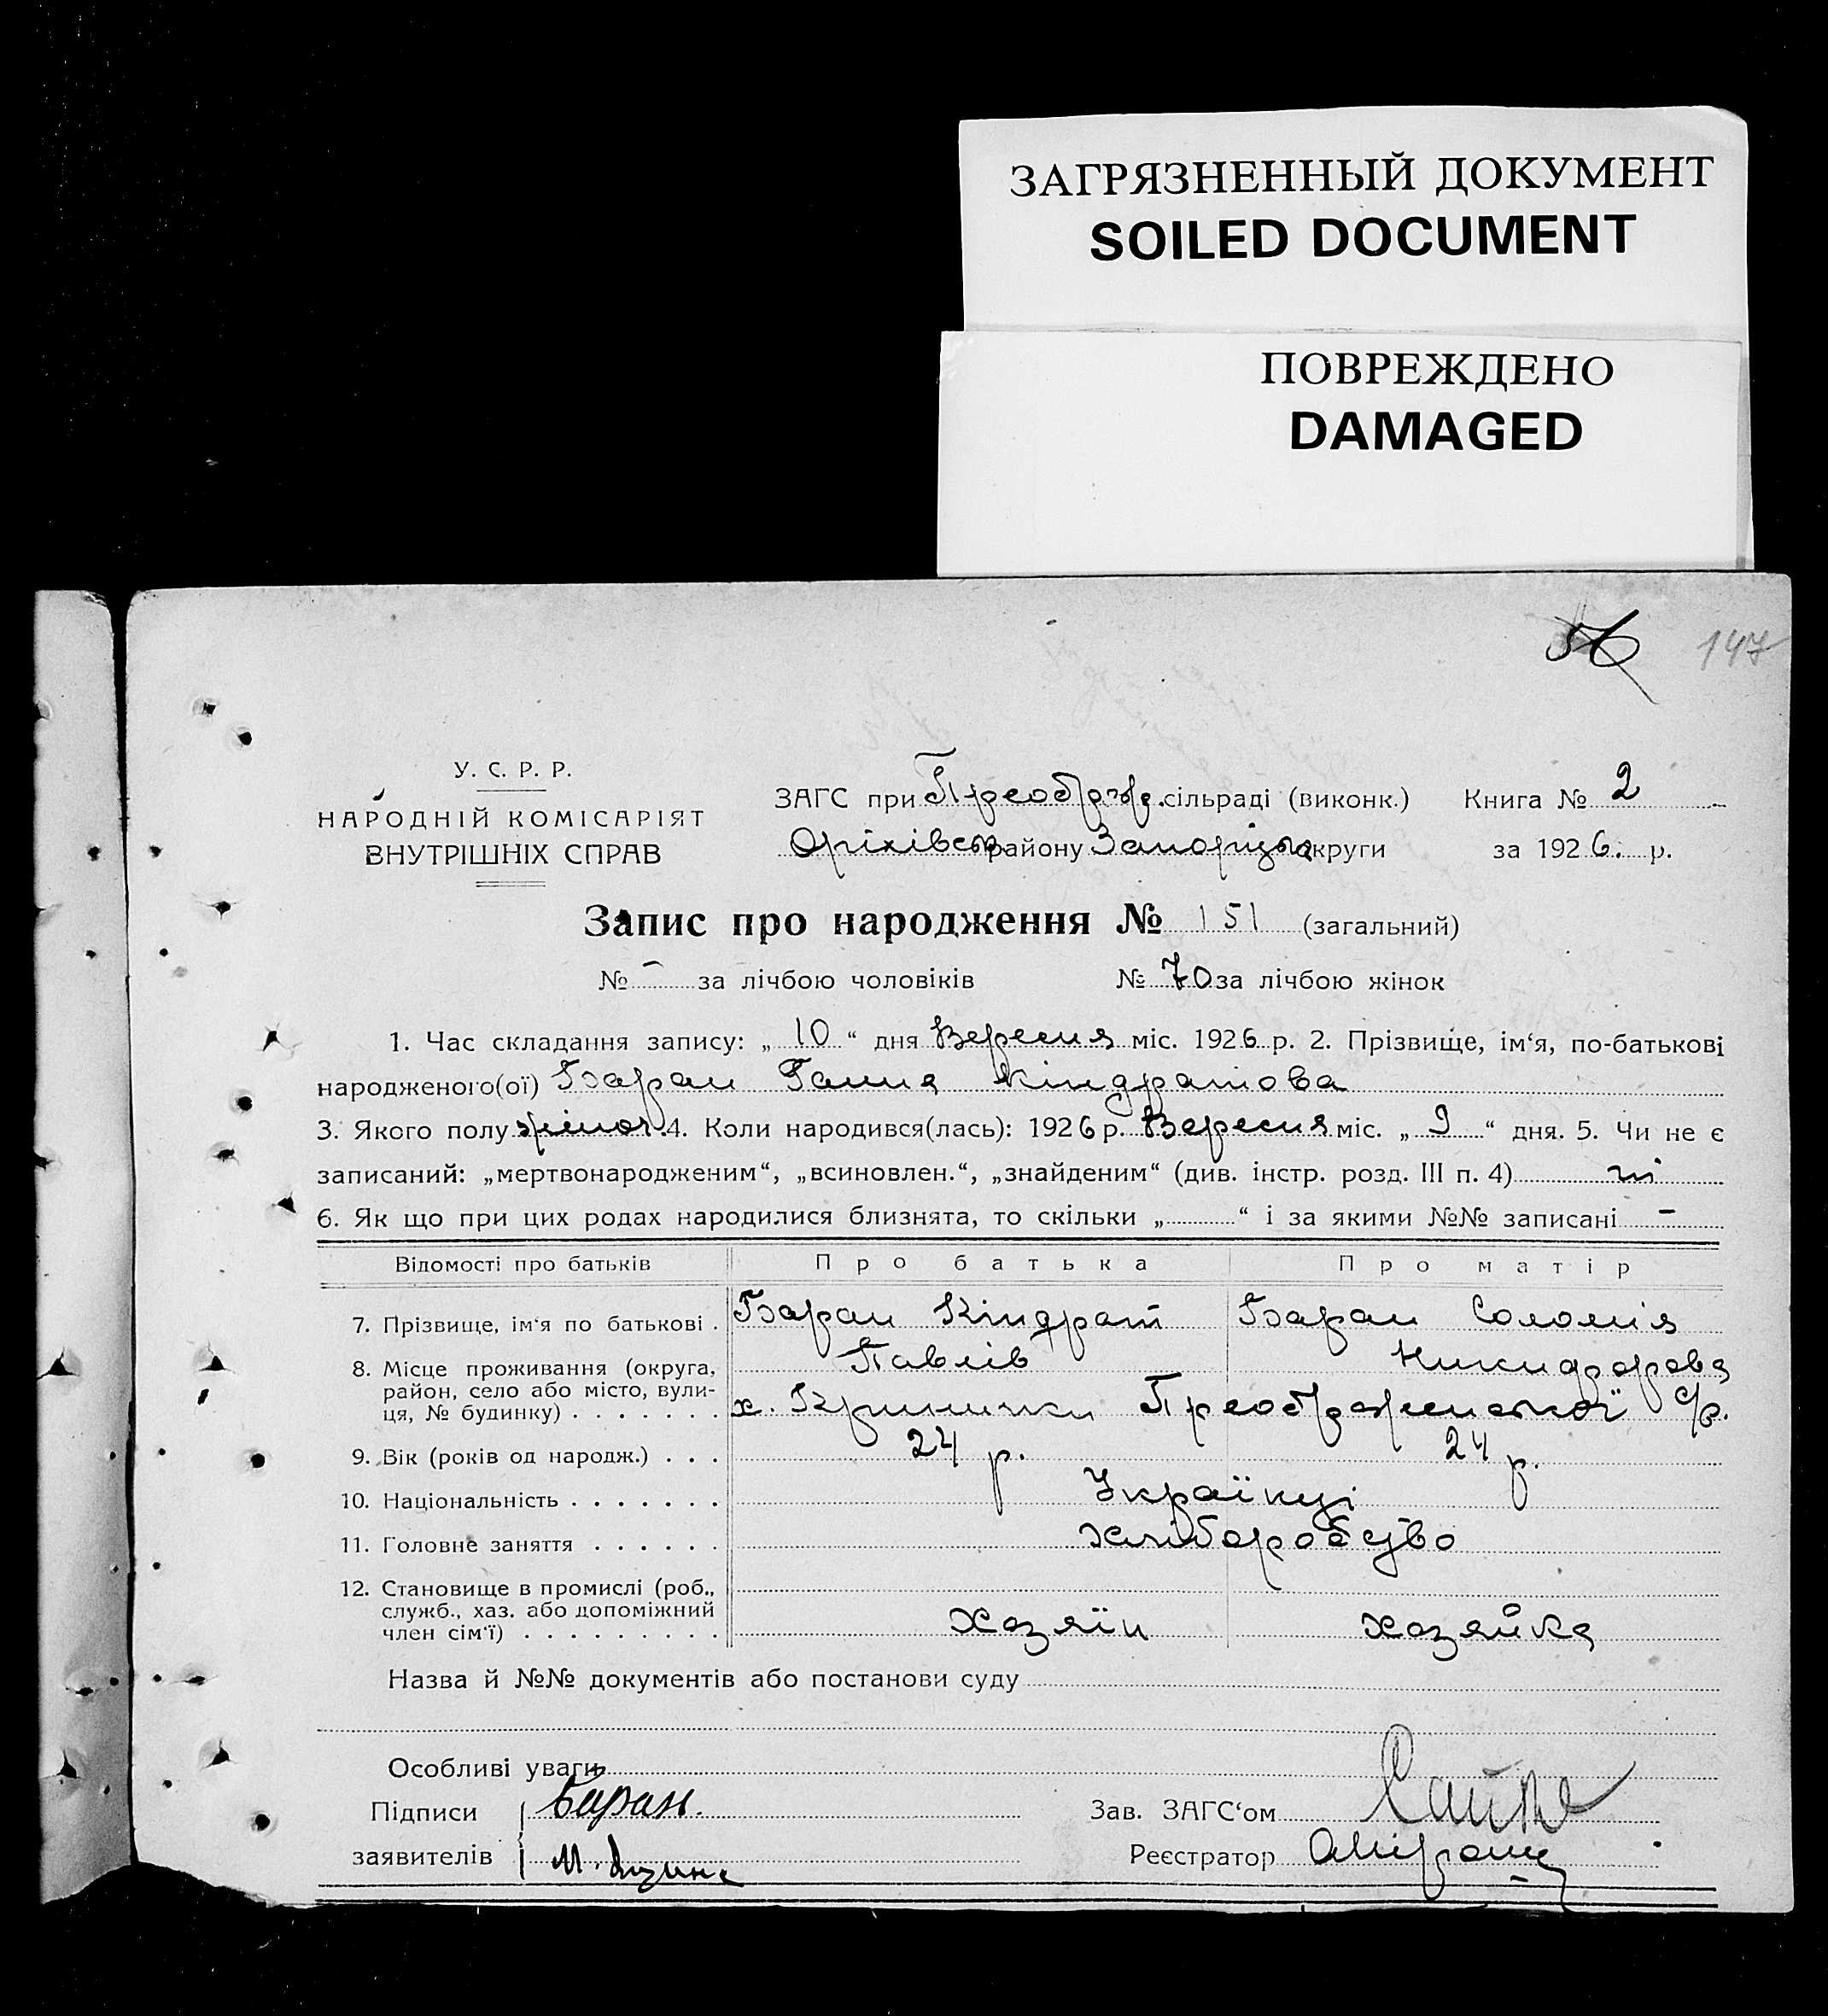 ЗАГРЯЗНЕННЫЙ ДОКУМЕНТ
SOILED DOCUMENT
ПОВРЕЖДЕНО
DAMAGED
147
У. С. Р. Р.
НАРОДНІЙ КОМІСАРІЯТ
ВНУТРІШНІХ СПРАВ
ЗАГС при Преображ. сільраді (виконк.) Книга № 2
Оріхівськ. району Запоріцьк округи за 1926. р.
Запис про народження № 151 (загальний)
№ - за лічбою чоловіків № 70 за лічбою жінок
1. Час складання запису: „ 10 “ дня Вересня міс. 1926 р. 2. Прізвище, ім‘я, по-батькові
народженого(ої) Баран Ганна Кіндратова
3. Якого полу жіноч. 4. Коли народився(лась): 1926 р. Вересня міс. „ 9 “ дня. 5. Чи не є
записаний: „мертвонародженим“, „всиновлен.“, „знайденим“ (див. інстр. розд. III п. 4) ні
6. Як що при цих родах народилися близнята, то скільки „ “ і за якими №№ записані -
Відомості про батьків Про батька Про матір
7. Прізвище, ім‘я по батькові . Баран Кіндрат Баран Соломія
Павлів Никифорова
8. Місце проживання (округа,
район, село або місто, вули-
ця, № будинку) . . . . . . . х. Кринички Преображенської с/р.
9. Вік (років од народж.) . . . 24 р. 24 р.
10. Національність . . . . . . . Українці
11. Головне заняття . . . . . . хліборобство
12. Становище в промислі (роб.,
служб., хаз. або допоміжний
член сім‘ї) . . . . . . . . . Хозяїн хозяйка
Назва й №№ документів або постанови суду
Особливі уваги
Підписи Баран.
Зав. ЗАГС‘ом
заявителів
Реєстратор